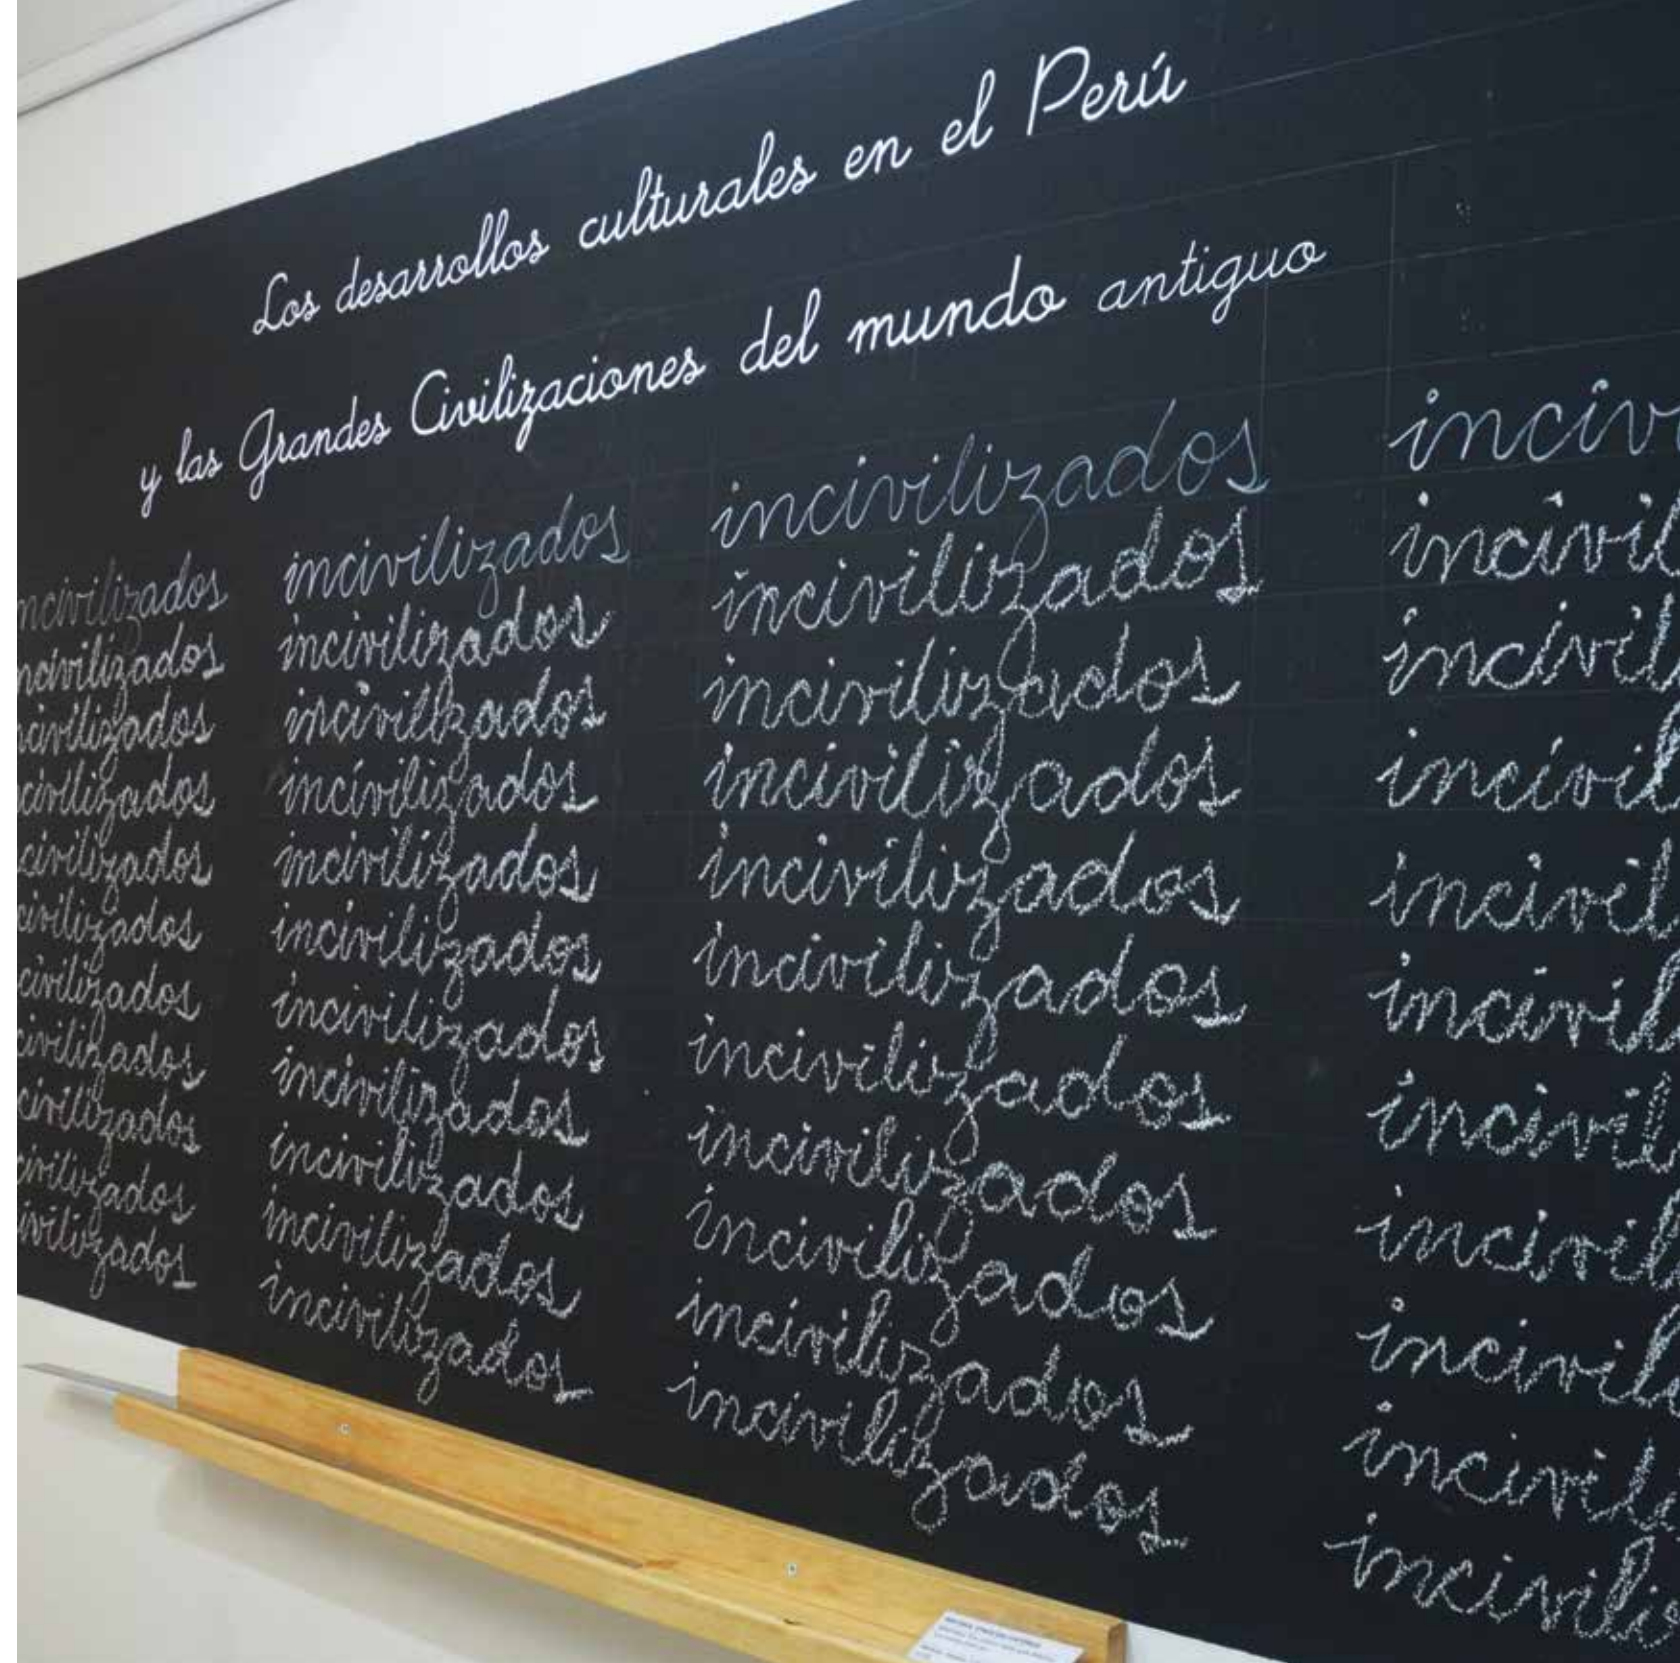 Los desarrollos culturales en el Perú
y las Grandes Civilizaciones del mundo antiguo
ncivilizados incivilizados incivilizados inciv
ncivilizados incivilizados incivilizados incivil
ncivilizados incivilizados incivilizados incivil
civilizados incivilizados incivilizados incivil
civilizados incivilizados incivilizados incivil
civilizados incivilizados incivilizados incivil
civilizados incivilizados incivilizados incivil
civilizados incivilizados incivilizados incivil
civilizados incivilizados incivilizados incivil
civilizados incivilizados incivilizados incivil
ivilizados incivilizados incivilizados incivili